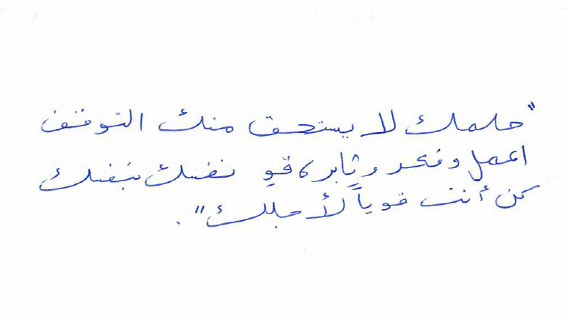 "حلمك لا يستحق منك التوقف
اعمل وفكر وثابر، قوِ نفسك بنفسك
كن أنت قوياً لأجلك".